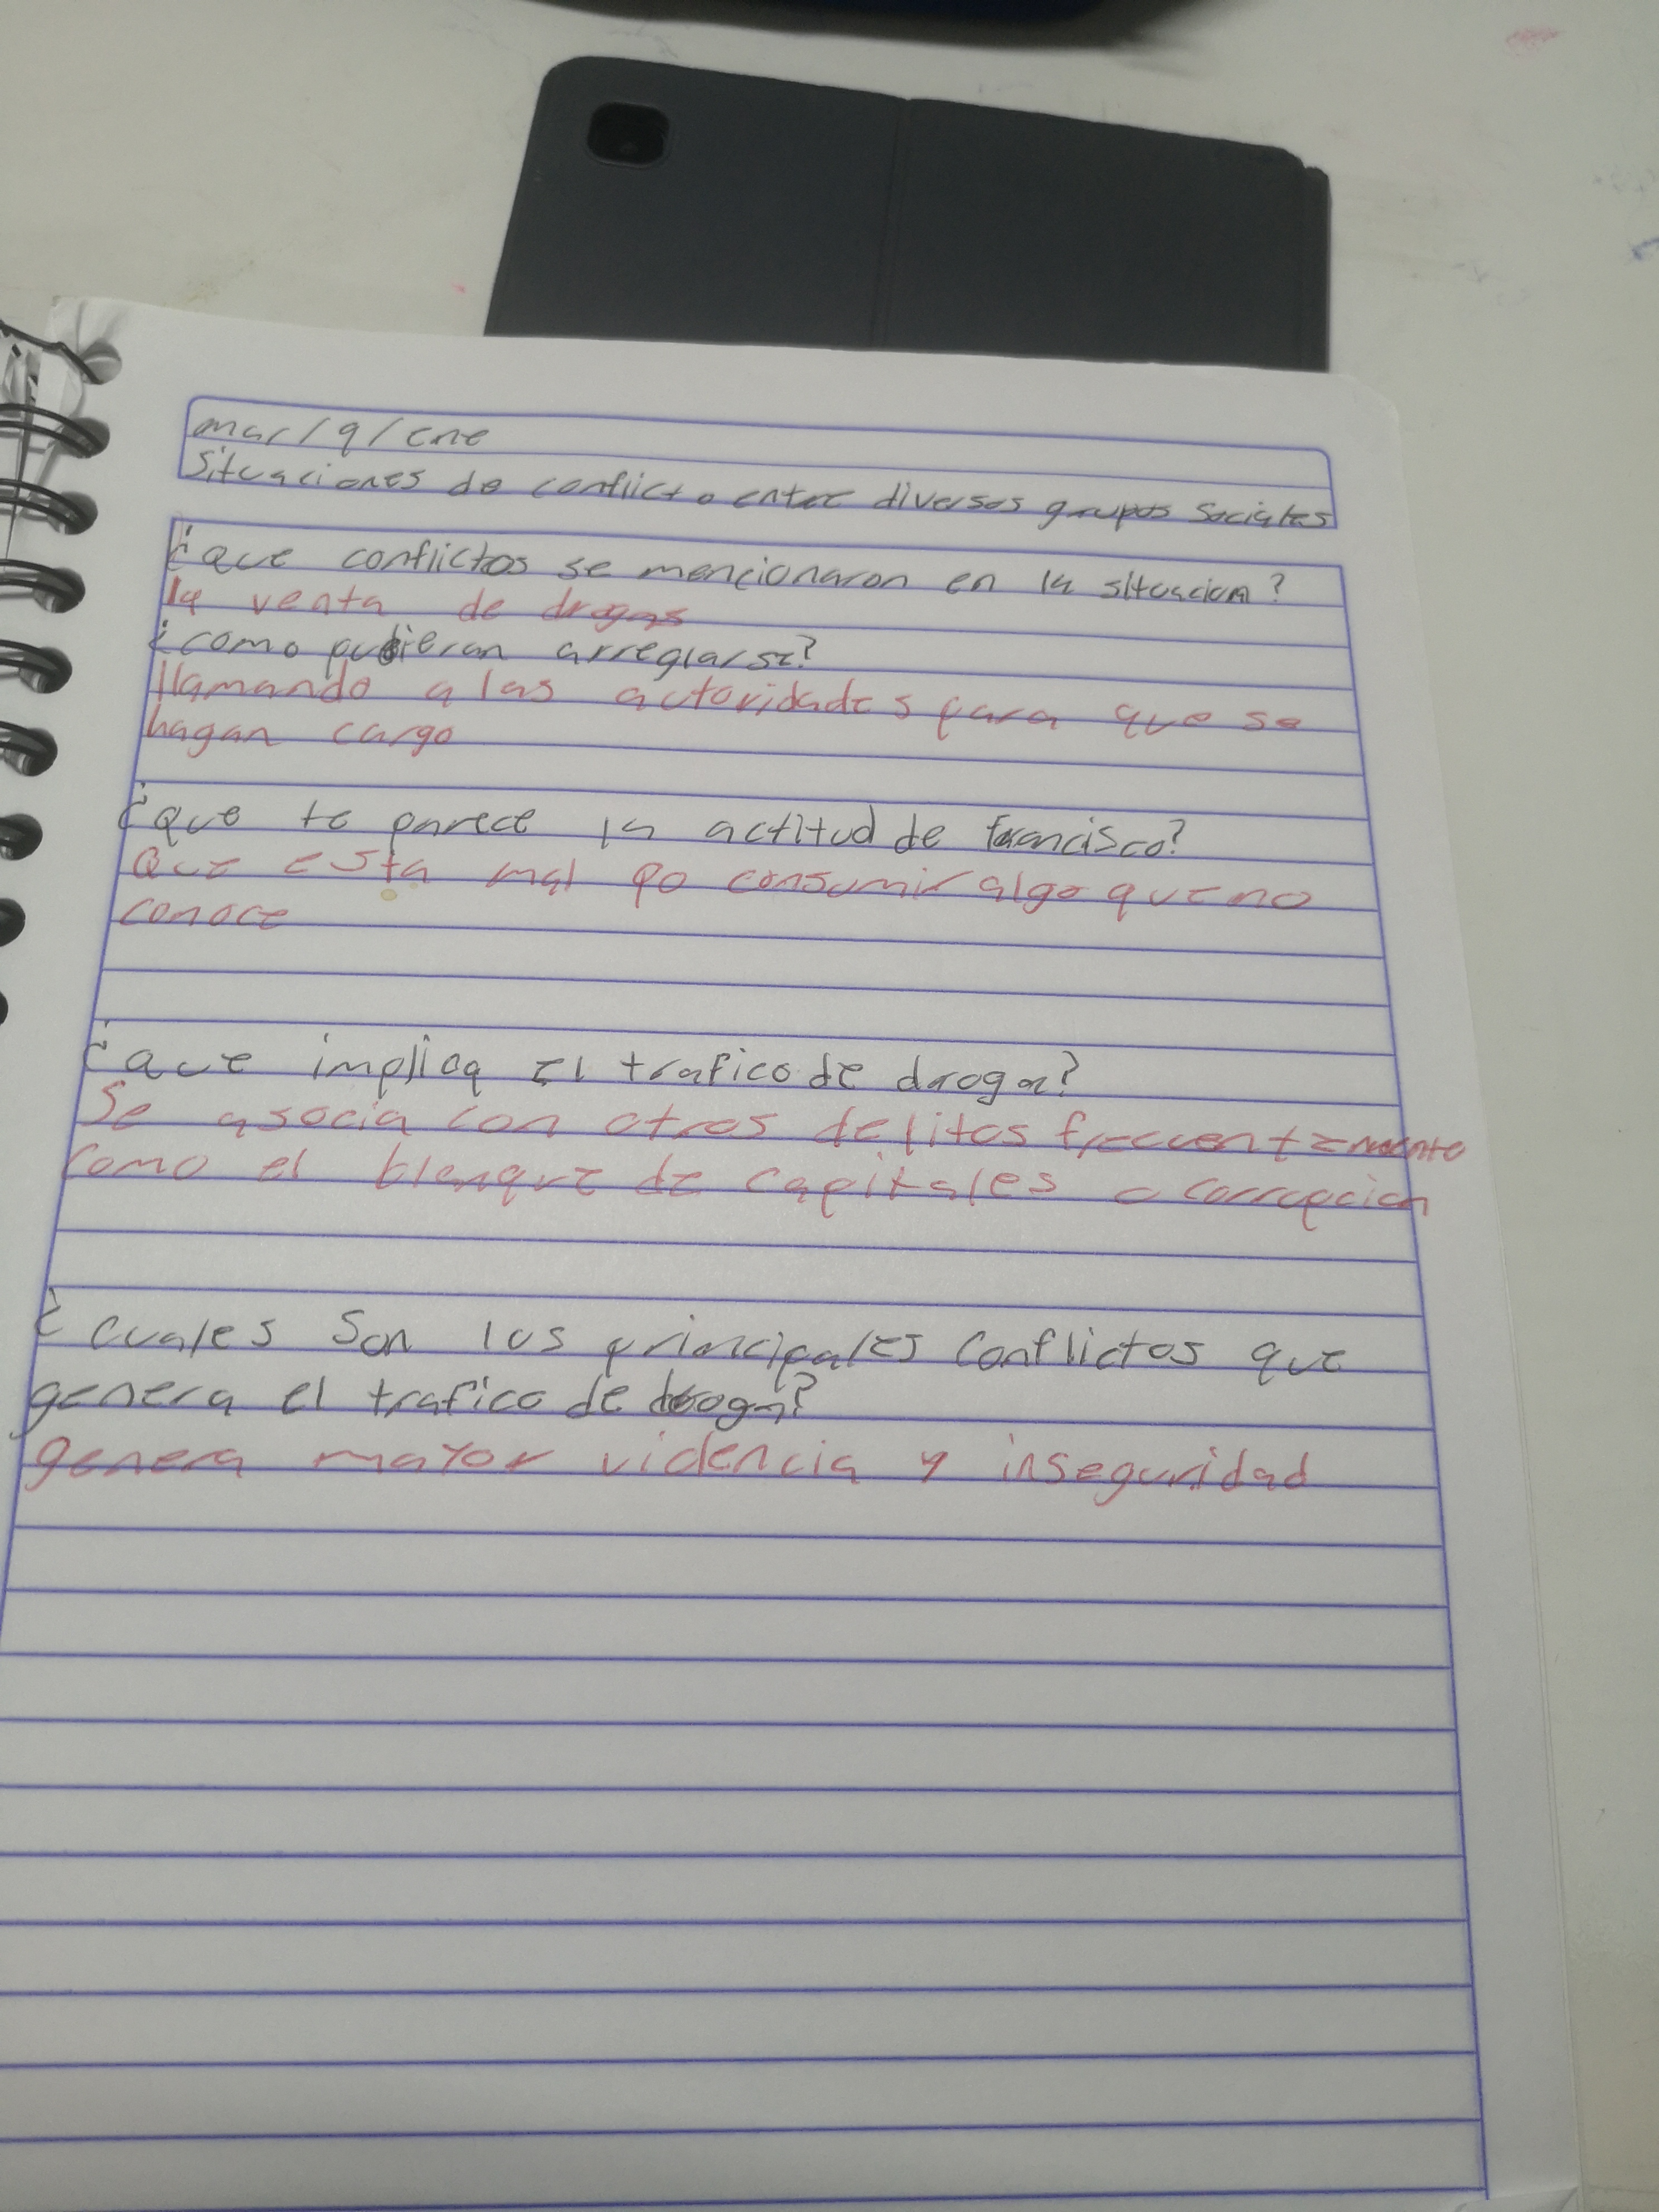 mar/9/ene
Situaciones de conflicto entre diversos grupos Sociales
¿que conflictos se mencionaron en la situacion?
la venta de drogas
¿como pudieran arreglarse?
llamando a las autoridades para que se
hagan cargo
¿que te parece la actitud de francisco?
Que esta mal po consumir algo que no
conoce
¿que implica el trafico de droga?
Se asocia con otros delitos frecuentemente
como el blanque de capitales o corrupcion
¿cuales son los principales conflictos que
genera el trafico de droga?
genera mayor videncia y inseguridad